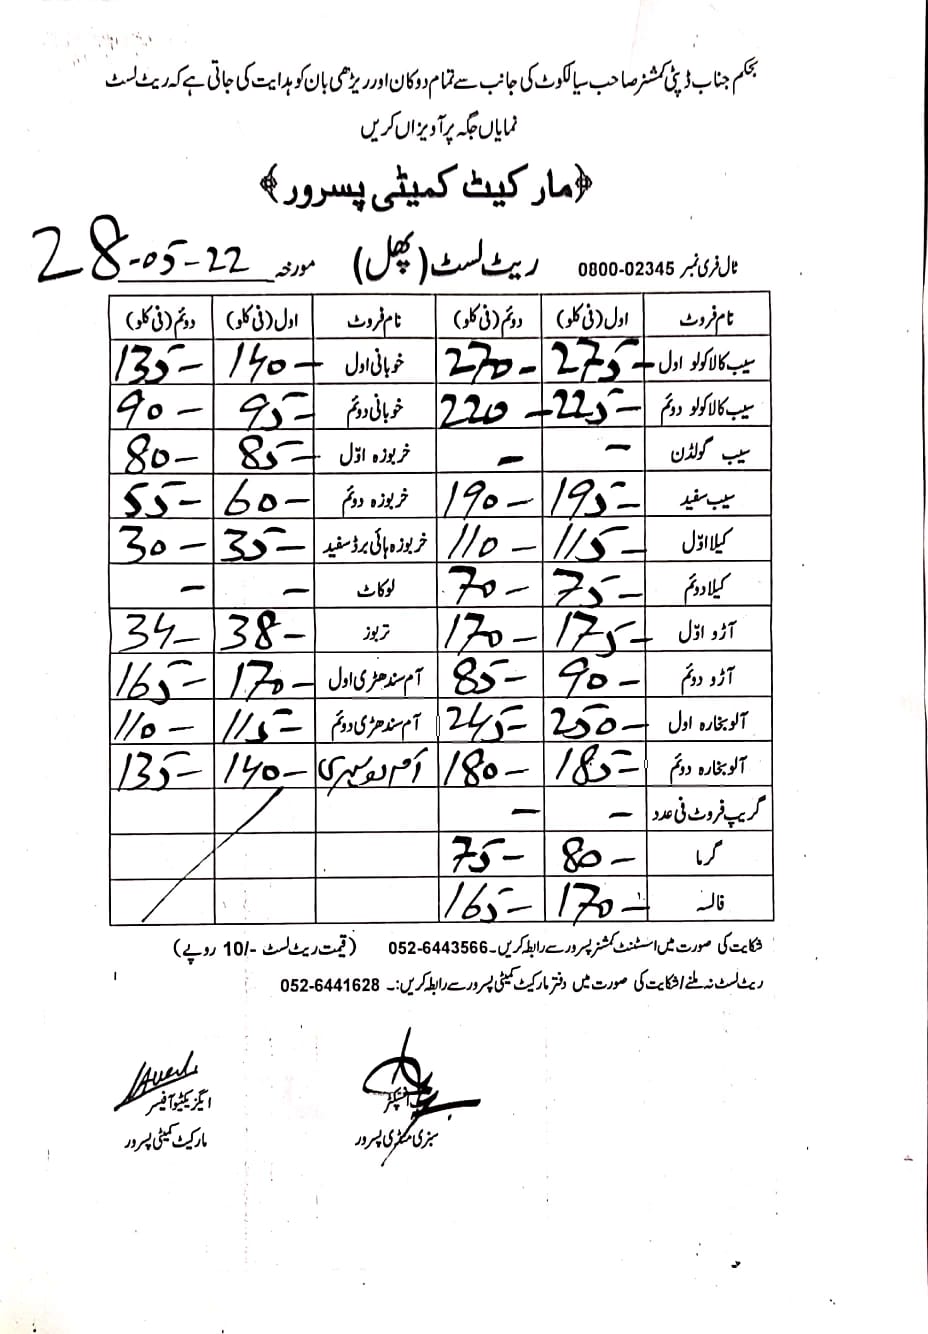 بحکم جناب ڈپٹی کمشنر صاحب سیالکوٹ کی جانب سے تمام دوکان اور ریڑھی بان کو ہدایت کی جاتی ہے کہ ریٹ لسٹ
نمایاں جگہ پر آویزاں کریں
﴿مارکیٹ کمیٹی پسرور﴾
ٹال فری نمبر 0800-02345 ریٹ لسٹ (پھل) مورخہ 28-05-22
نام فروٹ اول (فی کلو) دوئم (فی کلو) نام فروٹ اول (فی کلو) دوئم (فی کلو)
سیب کالا کولو اول 275- 270- خوبانی اول 140- 135-
سیب کالا کولو دوئم 225- 220- خوبانی دوئم 95- 90-
سیب گولڈن - - خربوزہ اوّل 85- 80-
سیب سفید 195- 190- خربوزہ دوئم 60- 55-
کیلا اوّل 115- 110- خربوزہ ہائی برڈ سفید 35- 30-
کیلا دوئم 75- 70- لوکاٹ - -
آڑو اوّل 175- 170- تربوز 38- 34-
آڑو دوئم 90- 85- آم سندھڑی اول 170- 165-
آلو بخارہ اول 250- 245- آم سندھڑی دوئم 115- 110-
آلو بخارہ دوئم 185- 180- آم دوسہری 140- 135-
گریپ فروٹ فی عدد - -
گرما 80- 75-
فالسہ 170- 165-
شکایت کی صورت میں اسسٹنٹ کمشنر پسرور سے رابطہ کریں۔ 052-6443566 (قیمت ریٹ لسٹ -/10 روپے)
ریٹ لسٹ نہ ملنے / شکایت کی صورت میں دفتر مارکیٹ کمیٹی پسرور سے رابطہ کریں:۔ 052-6441628
ایگزیکٹو آفیسر
سبزی منڈی پسرور مارکیٹ کمیٹی پسرور